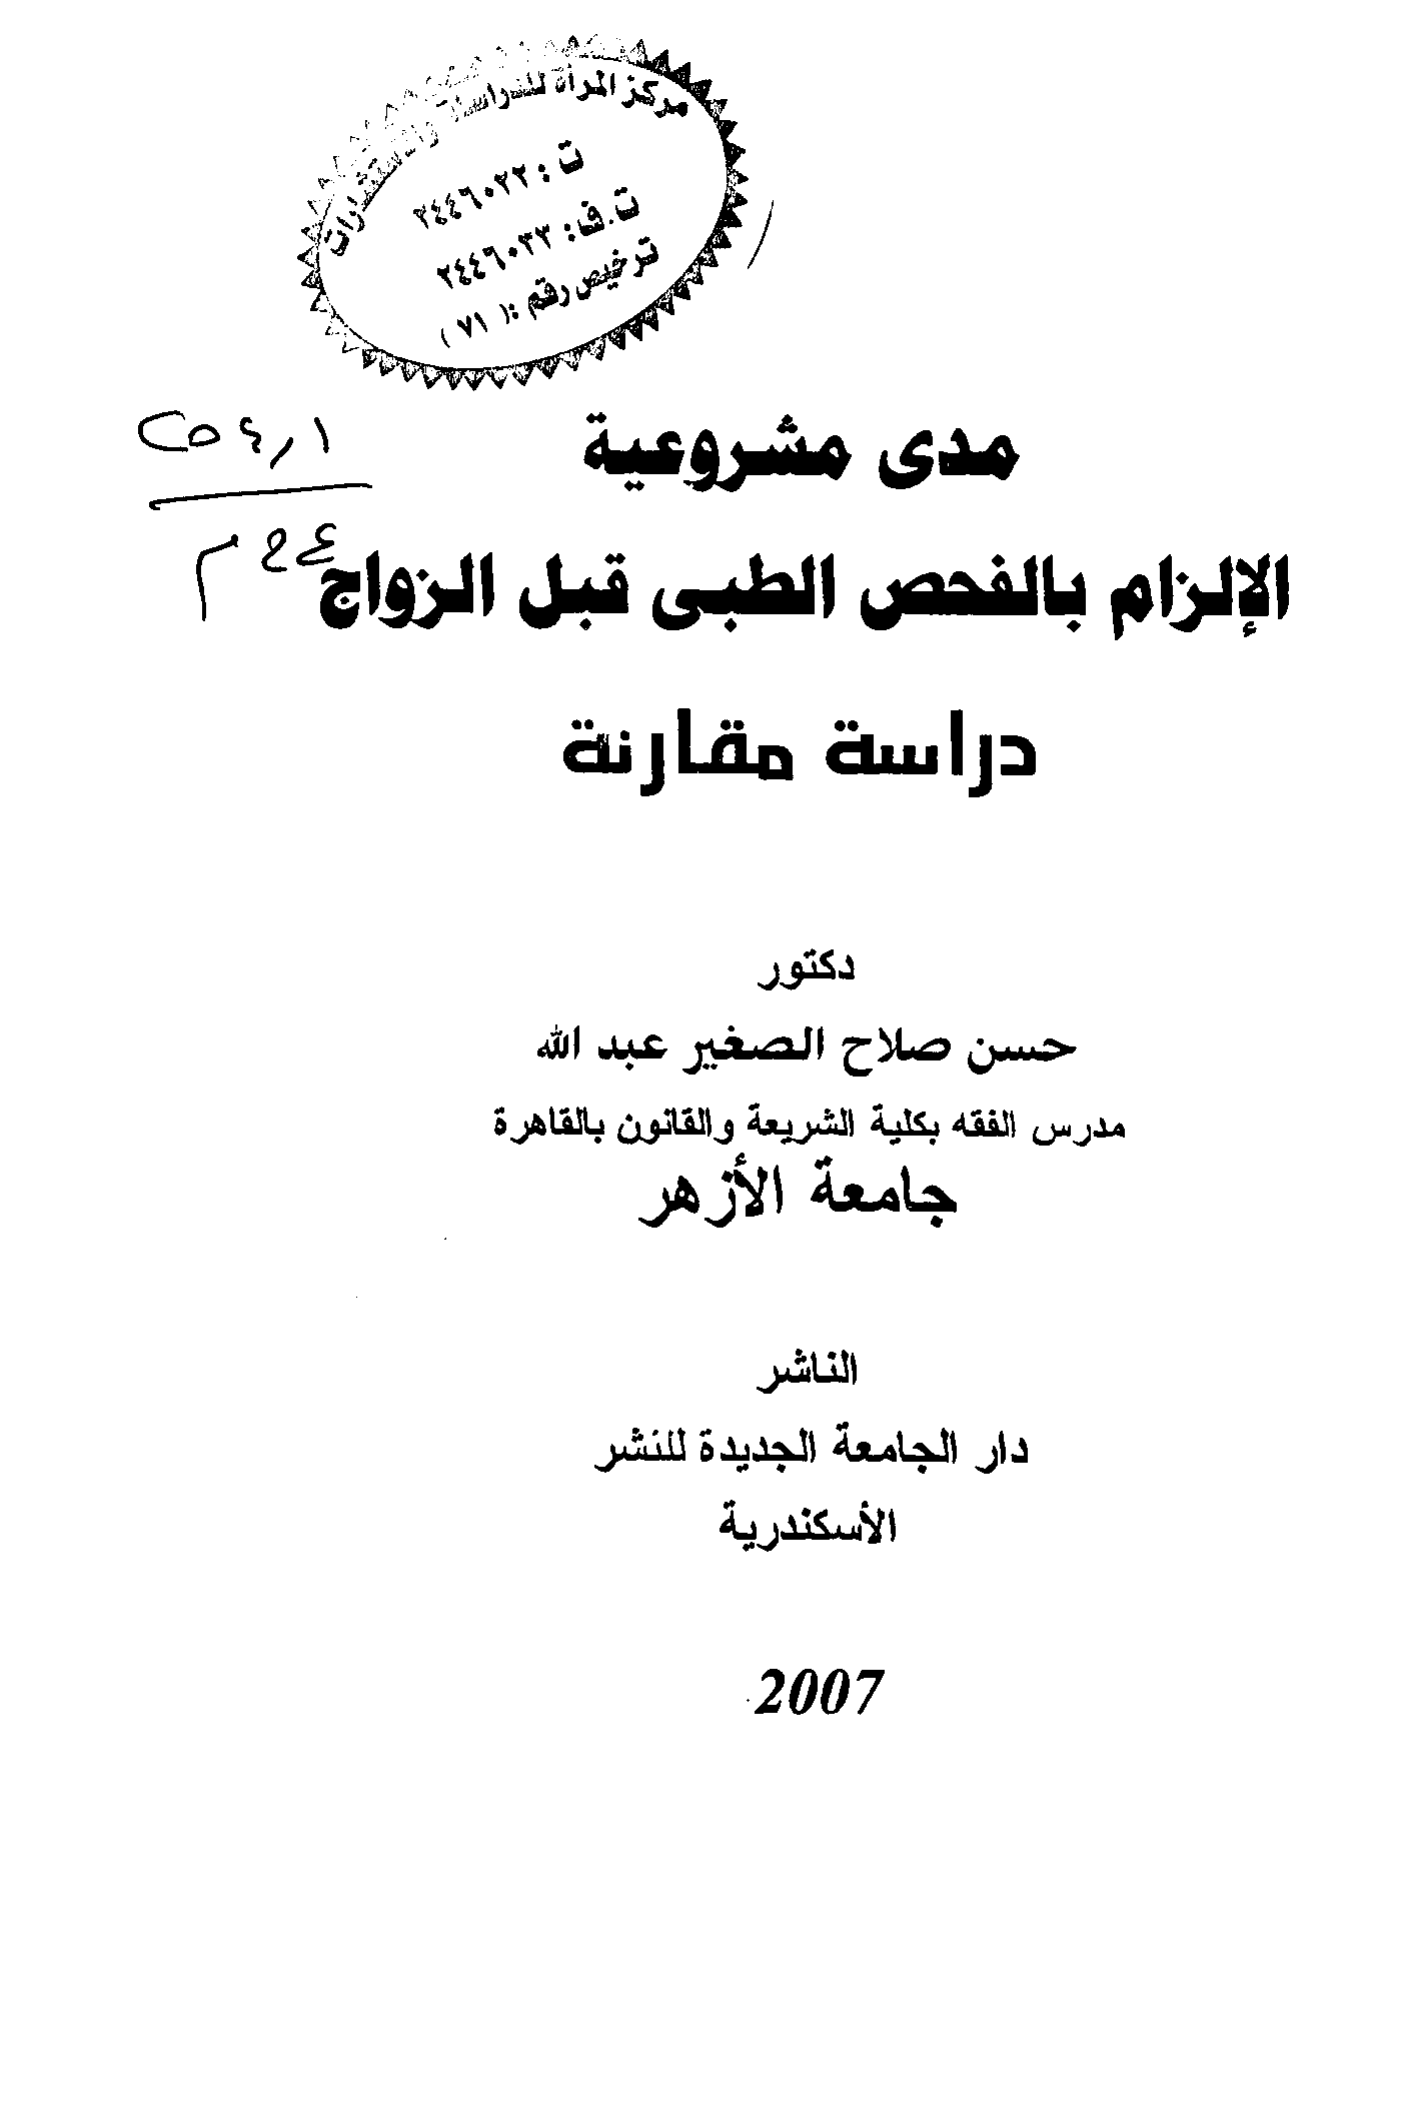 مركز المرأة للدراسات والاستشارات
ت : ٢٤٤٦٠٢٢
ت.ف: ٢٤٤٦٠٣٣
ترخيص رقم :( ٧١ )
مدى مشروعية
الإلزام بالفحص الطبى قبل الزواج
دراسة مقارنة
دكتور
حسن صلاح الصغير عبد الله
مدرس الفقه بكلية الشريعة والقانون بالقاهرة
جامعة الأزهر
الناشر
دار الجامعة الجديدة للنشر
الأسكندرية
2007